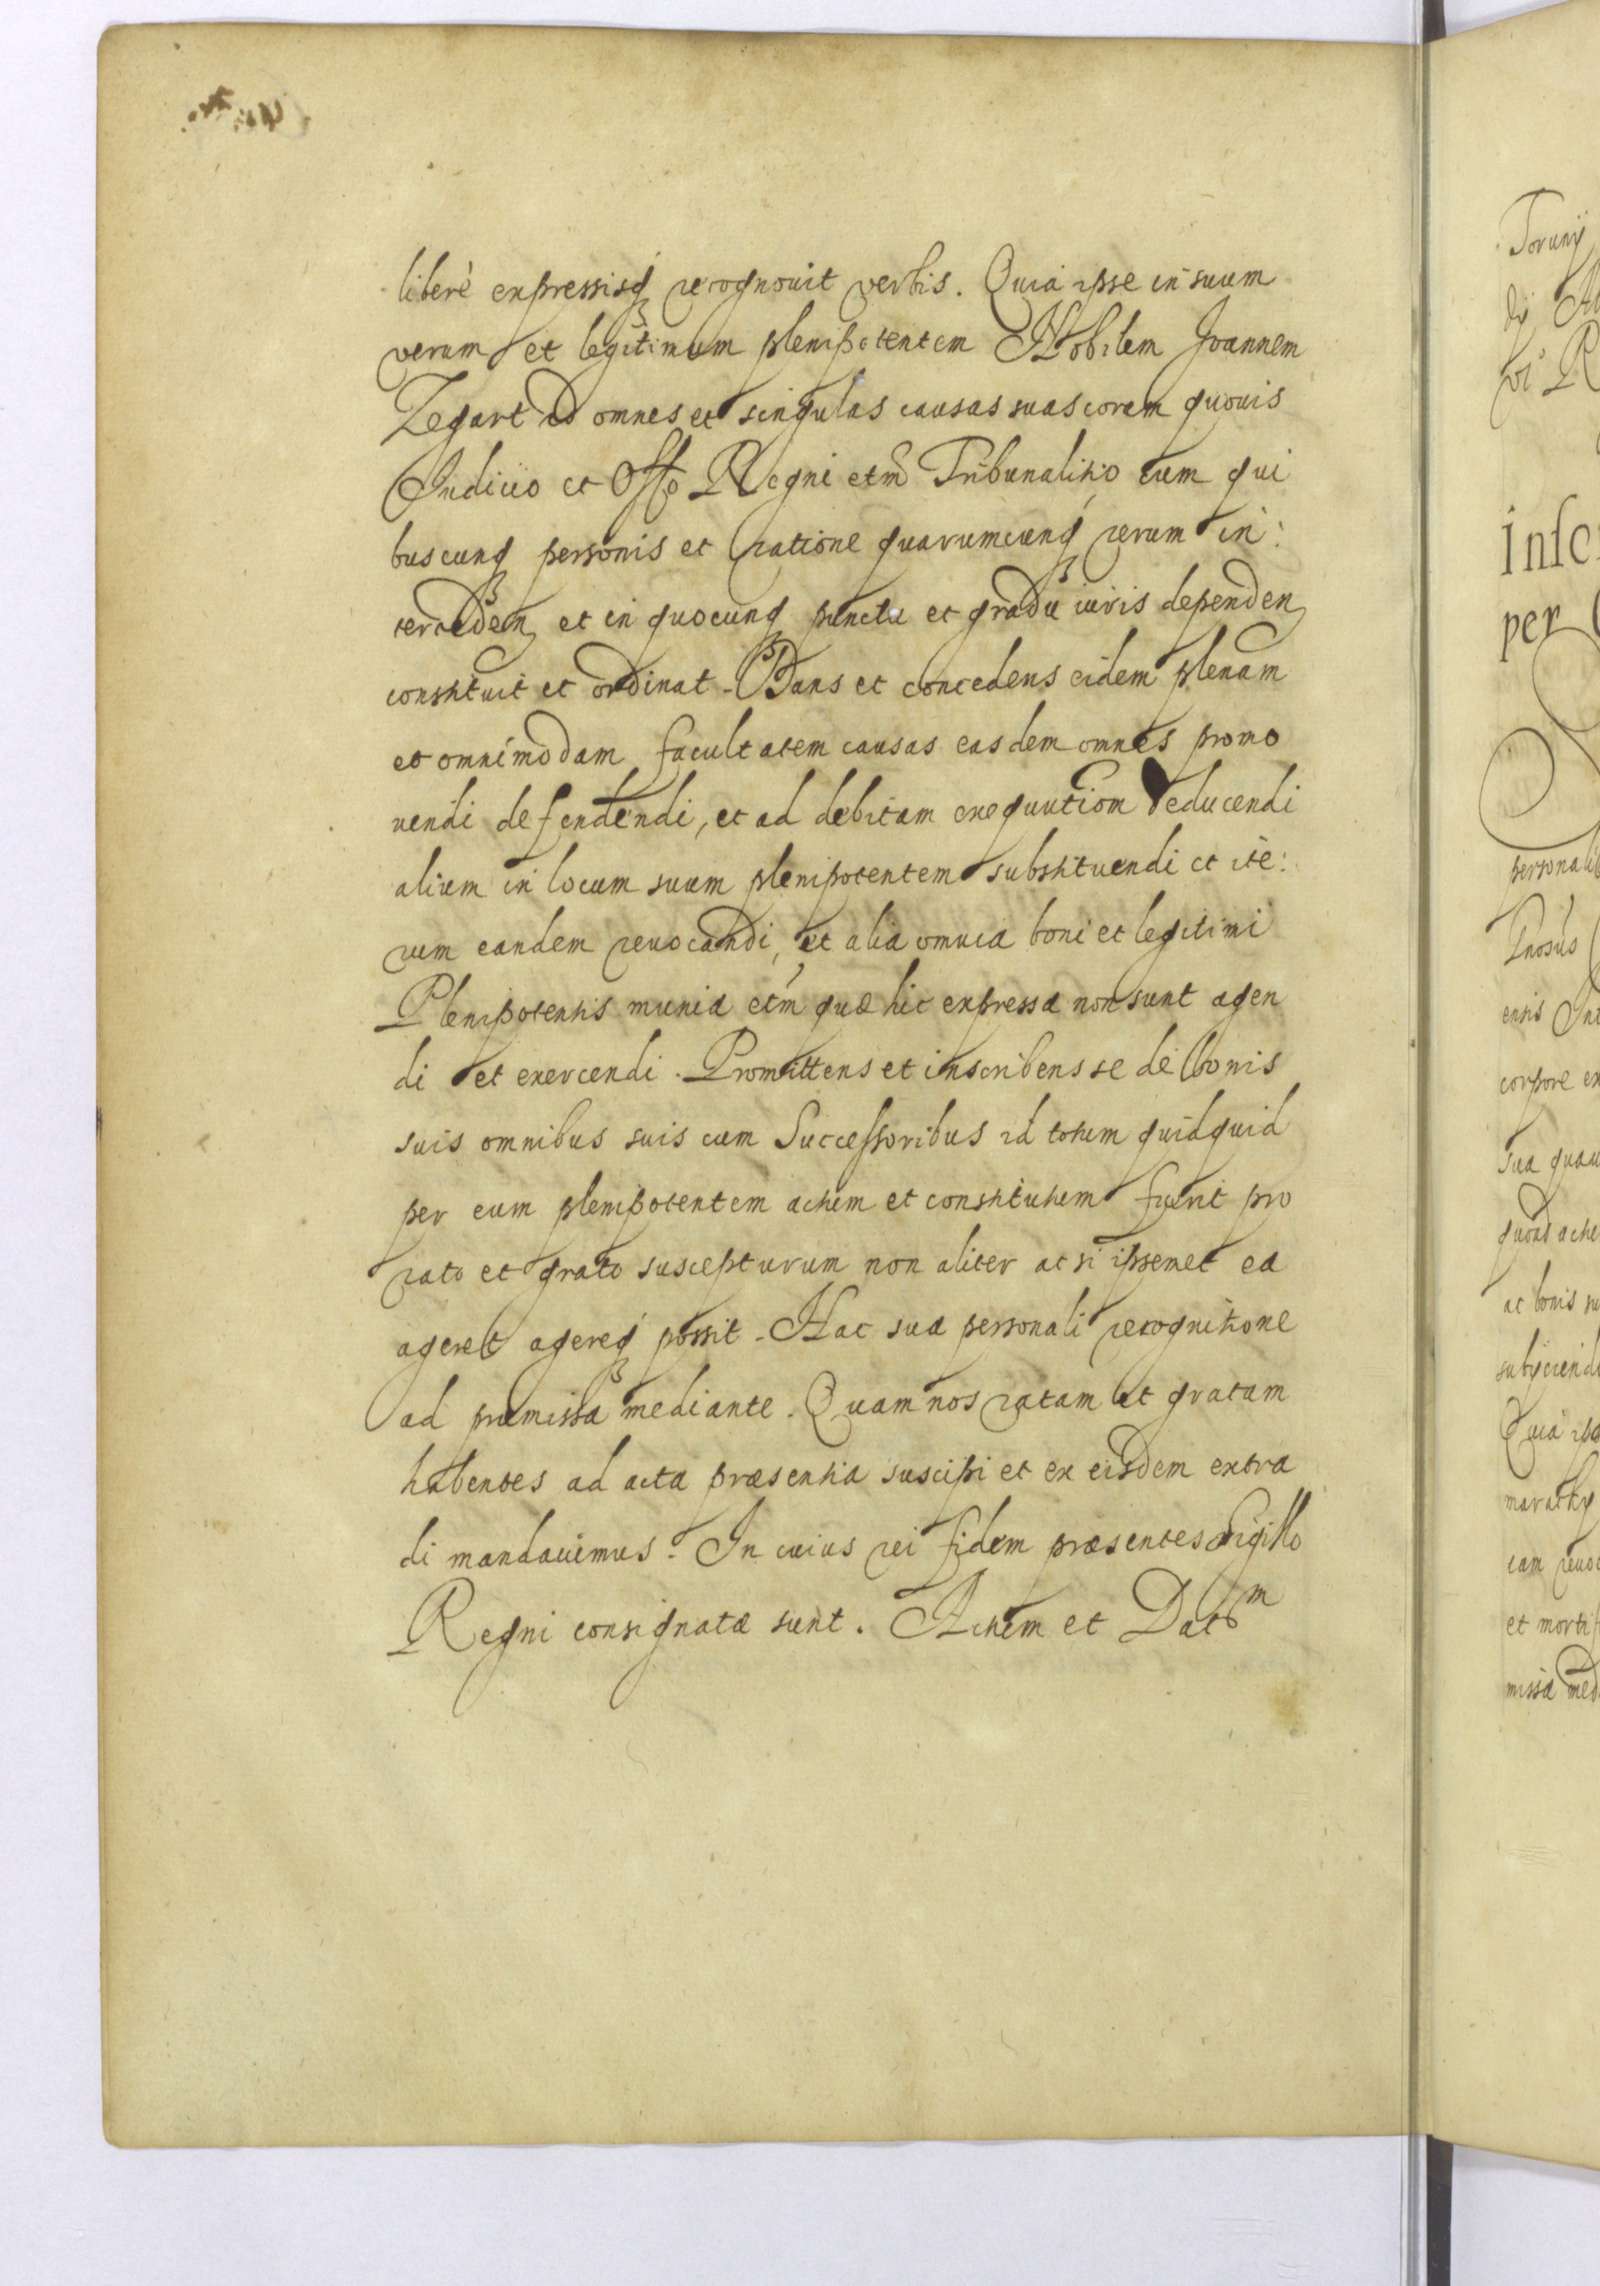 liberè expressisq₃ recognouit verbis. Quia ipse in suum
verum et legitimum plenipotentem Nobilem Joannem
Zegart ad omnes et singulas causas suas coram quouis
Iudicio et Offo Regni etm̃ Tribunalitio cum qui
buscunq₃ personis et ratione quarumcunq₃ rerum in:
terceden et in quocunq₃ punctu et gradu iuris dependen
constituit et ordinat. Dans et concedens eidem plenam
et omnimodam facultatem causas easdem omnes promo
uendi defendendi, et ad debitam exequutiom deducendi
alium in locum suum plenipotentem substituendi et ite:
rum eandem reuocandi, et alia omnia boni et legitimi
Plenipotentis munia etm̃ quæ hic expressa non sunt agen
di et exercendi. Promittens et inscribens se de bonis
suis omnibus suis cum Successoribus id totum quidquid
per eum plenipotentem actum et constitutum fuerit pro
rato et grato suscepturum non aliter ac si ipsemet ea
ageret agereq₃ possit. Hac sua personali recognitione
ad præmissa mediante. Quam nos ratam et gratam
habentes ad acta præsentia suscipi et ex eisdem extra
di mandauimus. In cuius rei fidem præsentes Sigillo
Regni consignatæ sunt. Actum et Datm
Toruny
per
personali
ensis
corpore
sua
ac bonis
Quia
et
missa